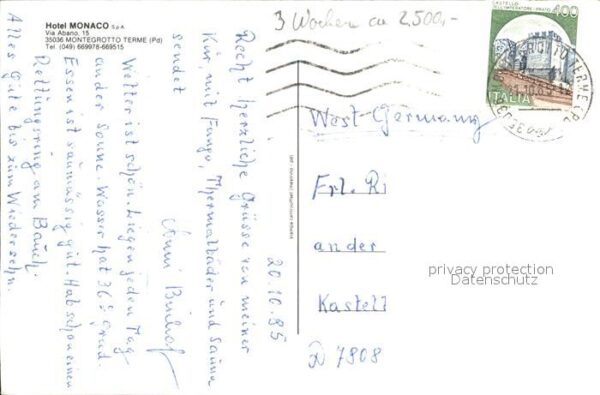 Hotel MONACO S.p.A.
Via Abano, 15
35036 MONTEGROTTO TERME (Pd)
Tel. (049) 669978-669515
3 Wochen ca 2.500,-
CASTELLO
DELL'IMPERATORE - PRATO
400
ITALIA
20.10.85
Recht herzliche Grüsse von meiner
Kur mit Fango, Thermalbäder und Sauna
sendet
Anni
Wetter ist schön. Liegen jeden Tag
an der Sonne. Wasser hat 36° Grad.
Essen ist saumässig gut. Hab schon einen
Rettungsring am Bauch.
Alles Gute bis zum Wiedersehn.
West-Germany
Frl. Ri
an der
Kastell
D 7808
privacy protection
Datenschutz